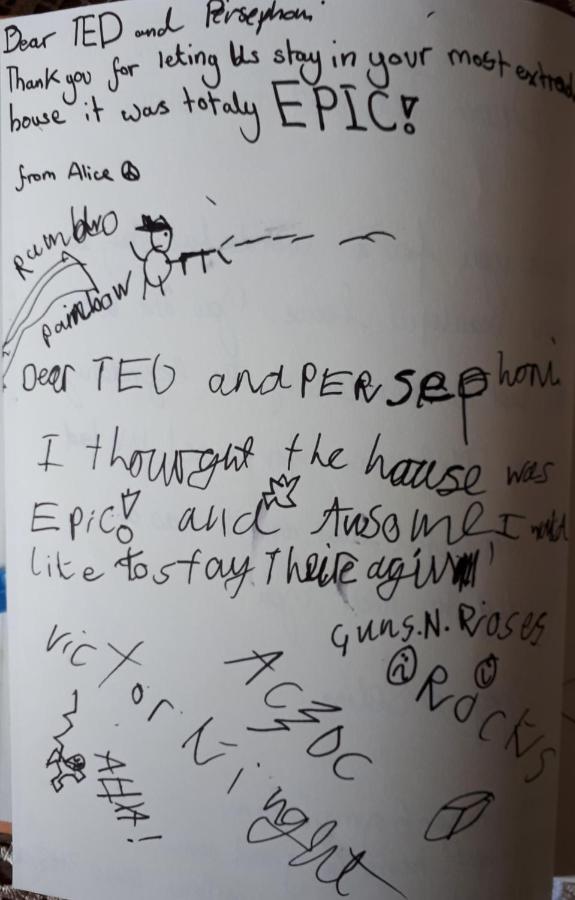 Dear TED and Persephoni
Thank you for leting Us stay in your most extrad
house it was totaly EPIC!
from Alice
Rambro
Painbow
Dear TED and PERSephoni
I thourght the hause was
Epic! and Ausome I would
like to stay Theire agin!
Guns.N.Rioses
Rocks
AC DC
Vicxor Linght
AHA!